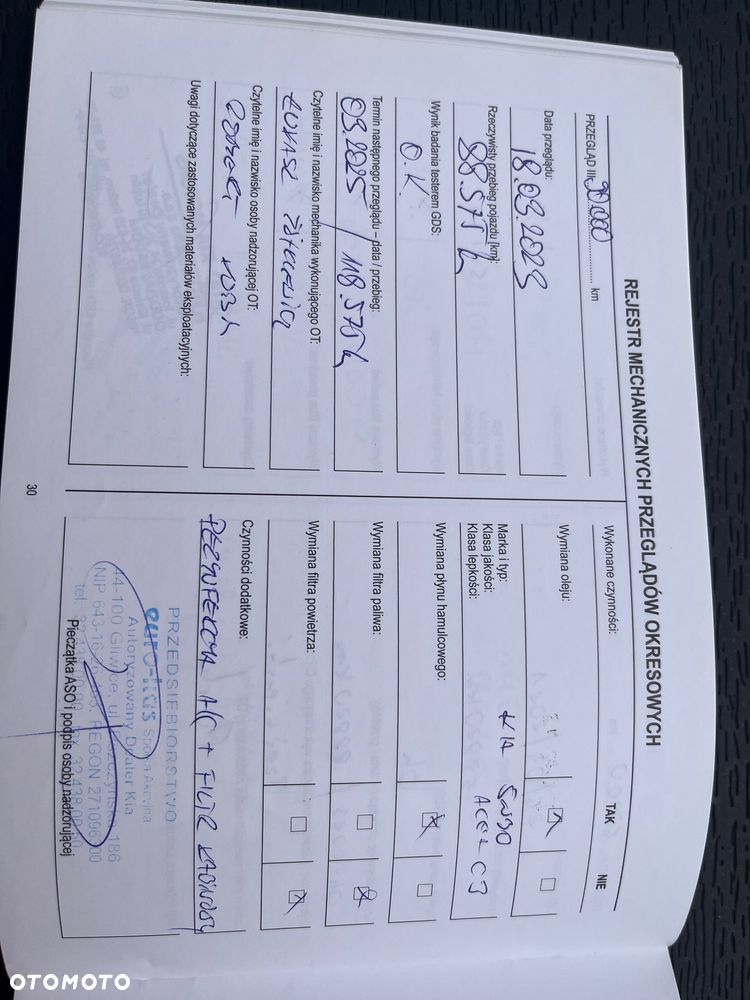 REJESTR MECHANICZNYCH PRZEGLĄDÓW OKRESOWYCH
PRZEGLĄD III: 90.000 km
Data przeglądu:
18.03.2023
Rzeczywisty przebieg pojazdu [km]:
88.575 k
Wynik badania testerem GDS:
O.K.
Termin następnego przeglądu – data / przebieg:
03.2025 / 118.575 k
Czytelne imię i nazwisko mechanika wykonującego OT:
ŁUKASZ
Czytelne imię i nazwisko osoby nadzorującej OT:
Uwagi dotyczące zastosowanych materiałów eksploatacyjnych:
Wykonane czynności: TAK NIE
Wymiana oleju:
Marka i typ: KIA 5W30
Klasa jakości: ACEA C3
Klasa lepkości:
Wymiana płynu hamulcowego:
Wymiana filtra paliwa:
Wymiana filtra powietrza:
Czynności dodatkowe:
DEZYNFEKCJA A/C + FILTR KABINOWY
PRZEDSIĘBIORSTWO
euro-kas Spółka Akcyjna
Autoryzowany Dealer Kia
44-100 Gliwice, ul. 186
NIP 643-16 REGON
tel.
Pieczątka ASO i podpis osoby nadzorującej
30
OTOMOTO